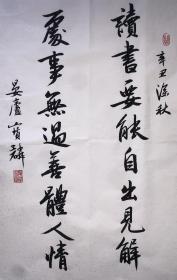 辛丑深秋
讀書要能自出見解
處事無過善體人情
晏廬寶麟